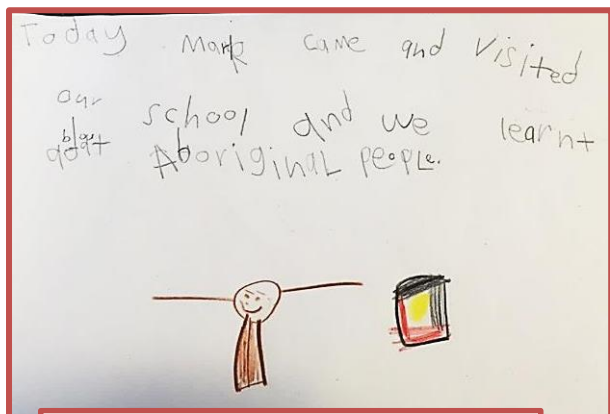 Today Mark came and visited
our school and we learnt
about Aboriginal people.